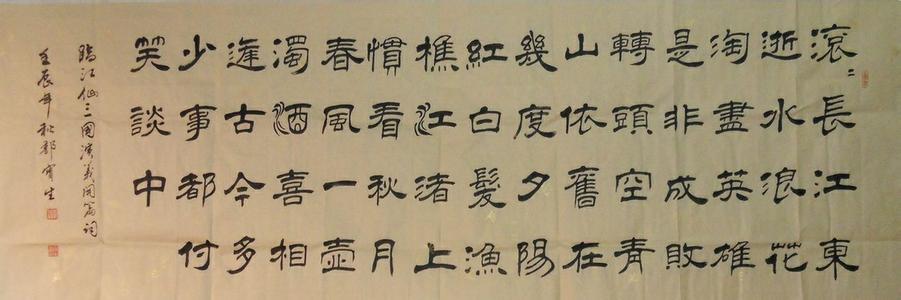 滚〻長江東
逝水浪花
淘盡英雄
是非成敗
轉頭空青
山依舊在
幾度夕陽
紅白髮漁
樵江渚上
慣看秋月
春風一壺
濁酒喜相
逢古今多
少事都付
笑談中
臨江仙三國演義開篇词
壬辰年秋